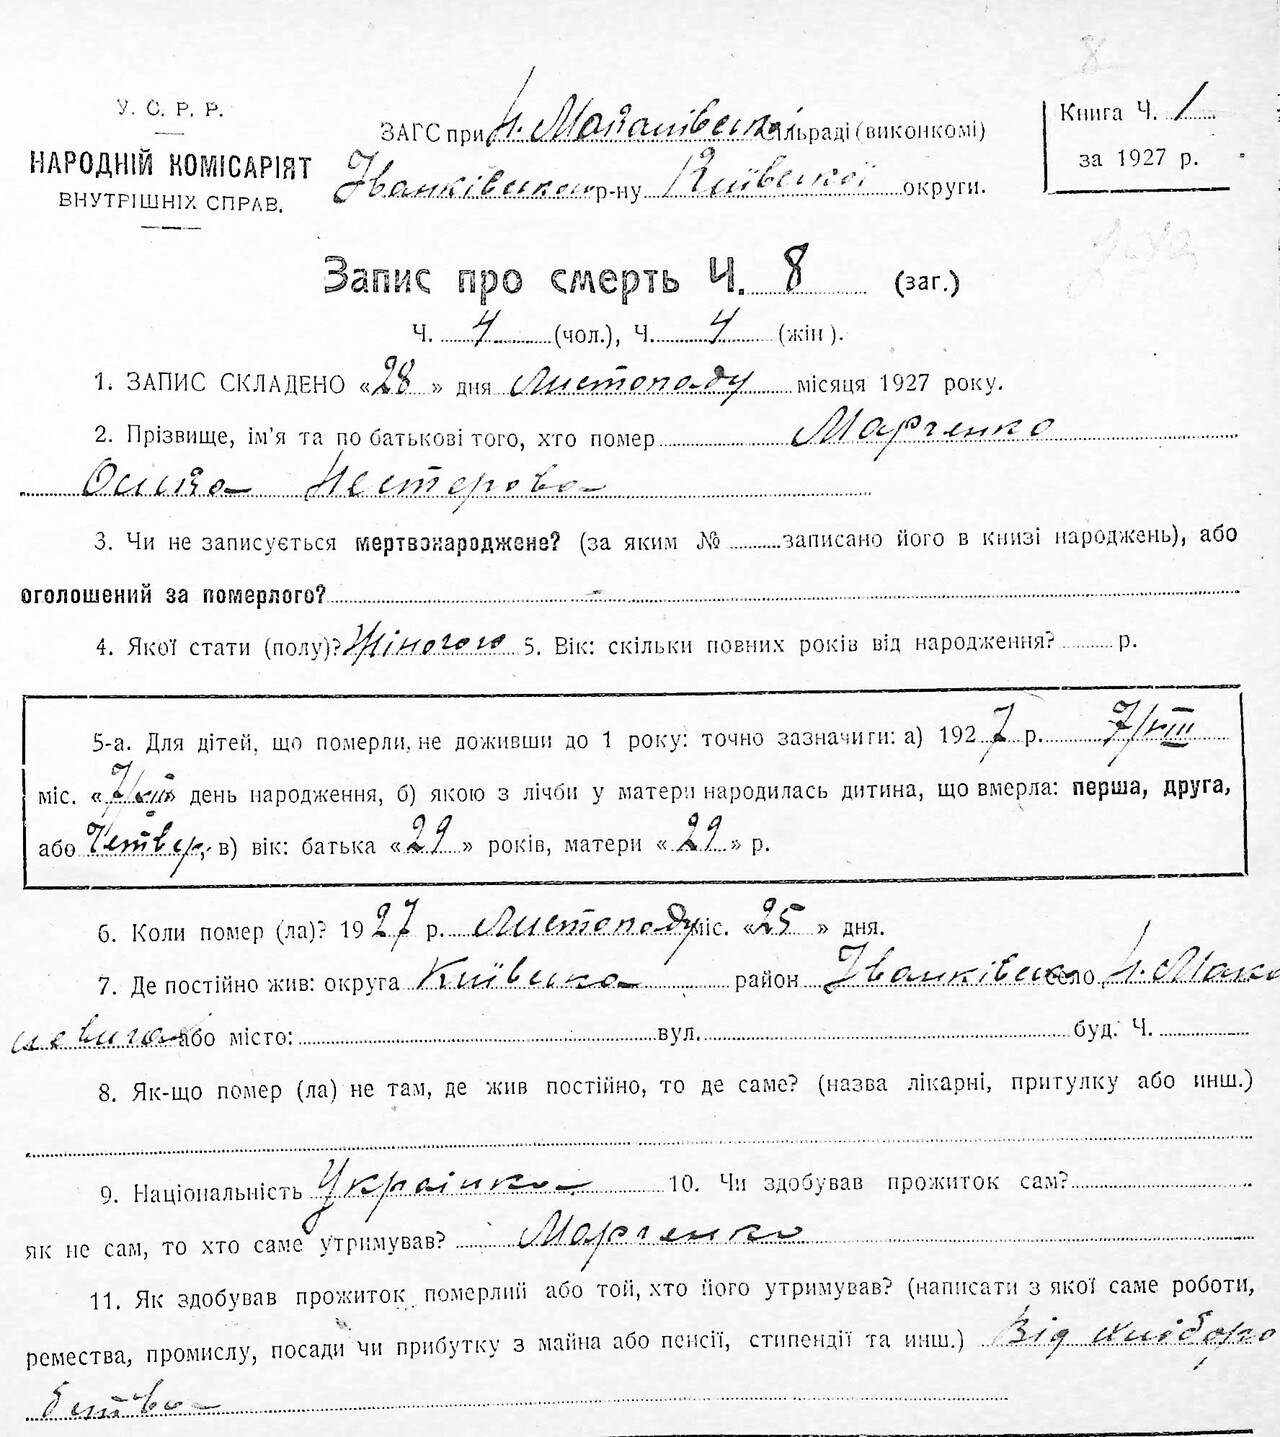 У. С. Р. Р.
НАРОДНІЙ КОМІСАРІЯТ
ВНУТРІШНІХ СПРАВ.
ЗАГС при Н. сільраді (виконкомі)
Іванківського р-ну Київської округи.
Книга Ч. 1
за 1927 р.
8
Запис про смерть Ч. 8 (заг.)
Ч. 4 (чол.), Ч. 4 (жін).
1. ЗАПИС СКЛАДЕНО «28» дня Листопаду місяця 1927 року.
2. Прізвище, ім'я та по батькові того, хто помер Марченко
Нестерова
3. Чи не записується мертвонароджене? (за яким № записано його в книзі народжень), або
оголошений за померлого? -
4. Якої стати (полу)? Жіночого 5. Вік: скільки повних років від народження? р.
5-а. Для дітей, що померли, не доживши до 1 року: точно зазначити: а) 1927 р. 7/VIII
міс. «7/VIII» день народження, б) якою з лічби у матери народилась дитина, що вмерла: перша, друга,
або четвер, в) вік: батька «29» років, матери «29» р.
6. Коли помер (ла)? 1927 р. Листопаду міс. «25» дня.
7. Де постійно жив: округа Київська район Іванківськ село Н. Мака
або місто: вул. буд. Ч.
8. Як-що помер (ла) не там, де жив постійно, то де саме? (назва лікарні, притулку або инш.)
9. Національність Українка 10. Чи здобував прожиток сам?
як не сам, то хто саме утримував? Марченко
11. Як здобував прожиток померлий або той, хто його утримував? (написати з якої саме роботи,
ремества, промислу, посади чи прибутку з майна або пенсії, стипендії та инш.) Від хліборо
бства